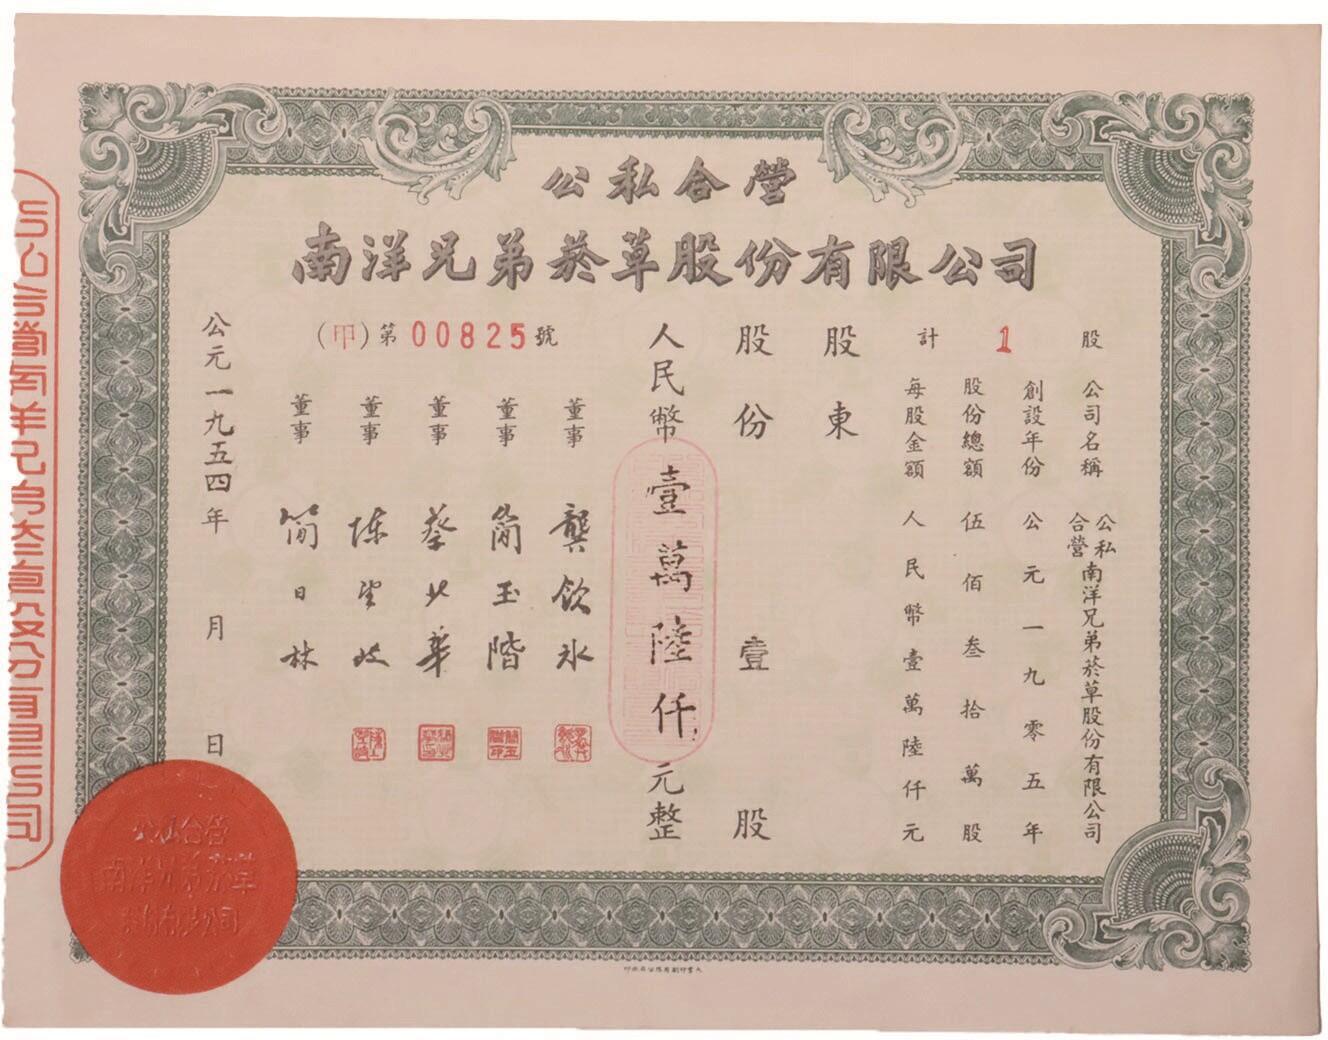 公私合營
南洋兄弟菸草股份有限公司
計 1 股
公司名稱 公私合營南洋兄弟菸草股份有限公司
創設年份 公元一九零五年
股份總額 伍佰叁拾萬股
每股金額 人民幣壹萬陸仟元
股東
股份 壹 股
人民幣壹萬陸仟元整
(甲)第00825號
董事 龔飲冰
董事 簡玉階
董事 蔡北華
董事 陳望岐
董事 簡日林
公元一九五四年 月 日
公私合營
南洋兄弟菸草
股份有限公司